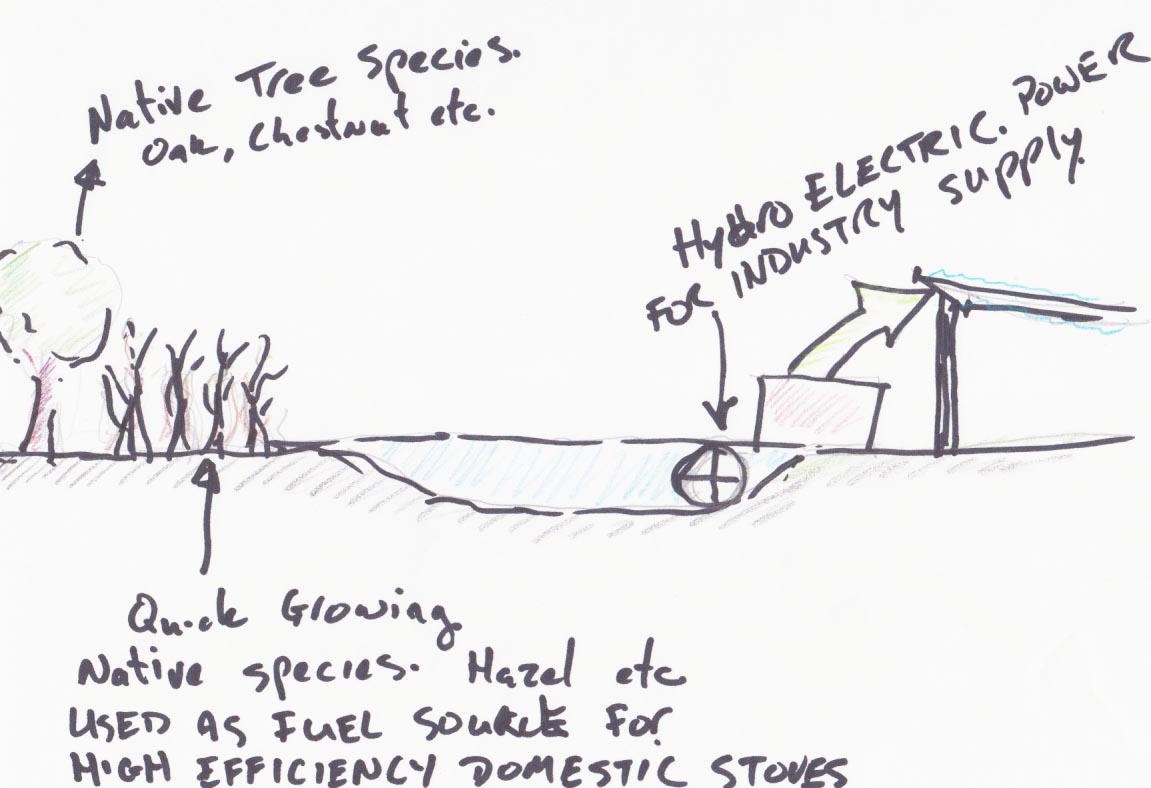 Native Tree Species.
Oak, Chestnut etc.
Hydro ELECTRIC. POWER
FOR INDUSTRY supply.
Quick Growing
Native species. Hazel etc
USED AS FUEL SOURCE FOR
HIGH EFFICIENCY DOMESTIC STOVES